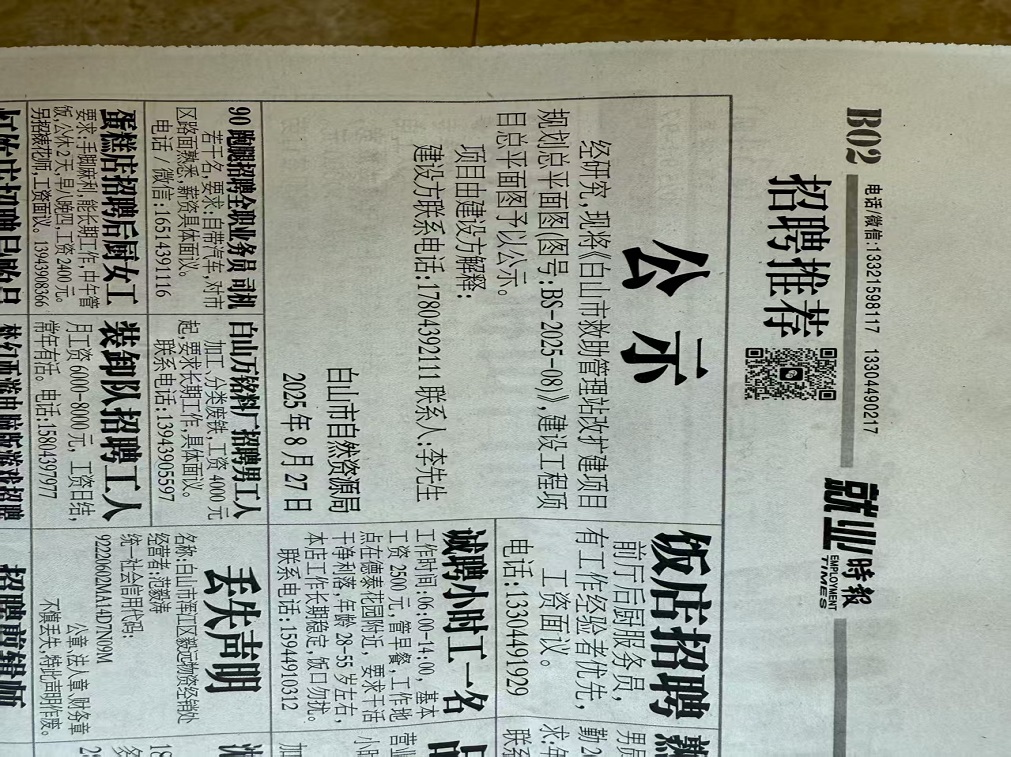 B02
电话/微信:13321598117 13304490217
就业時報
EMPLOYMENT
TIMES
招聘推荐
公示
经研究,现将《白山市救助管理站改扩建项目
规划总平面图(图号:BS-2025-08)》,建设工程项
目总平面图予以公示。
项目由建设方解释:
建设方联系电话:17804392111 联系人:李先生
白山市自然资源局
2025年8月27日
饭店招聘
前厅后厨服务员,
有工作经验者优先,
工资面议。
电话:13304491929
诚聘小时工一名
工作时间:06:00-14:00, 基本
工资 2500元,管早餐,工作地
点在德泰花园附近,要求干活
干净利落,年龄28-55岁左右,
本店工作长期稳定,饭口勿扰。
联系电话:15944910312
90跑腿招聘全职业务员 司机
若干名,要求:自带汽车,对市
区路面熟悉,薪资具体面议。
电话/微信:1651439116
白山万铭料厂招聘男工人
加工、分类废铁,工资4000元
起,要求长期工作,具体面议。
联系电话:13943905597
丢失声明
名称:白山市浑江区毅远物资经销处
经营者:范毅涛
统一社会信用代码:
92220602MA14D7N09M
公章、法人章、财务章
不慎丢失,特此声明作废。
蛋糕店招聘后厨女工
要求:手脚麻利,能长期工作,中午管
饭,公休2天,早八晚四,工资2400元。
另招裱花师,工资面议。13943908366
装卸队招聘工人
月工资6000-8000元,工资日结,
常年有活。电话:15804397977
梦幻西游电脑版游戏招聘
招聘剪辑师